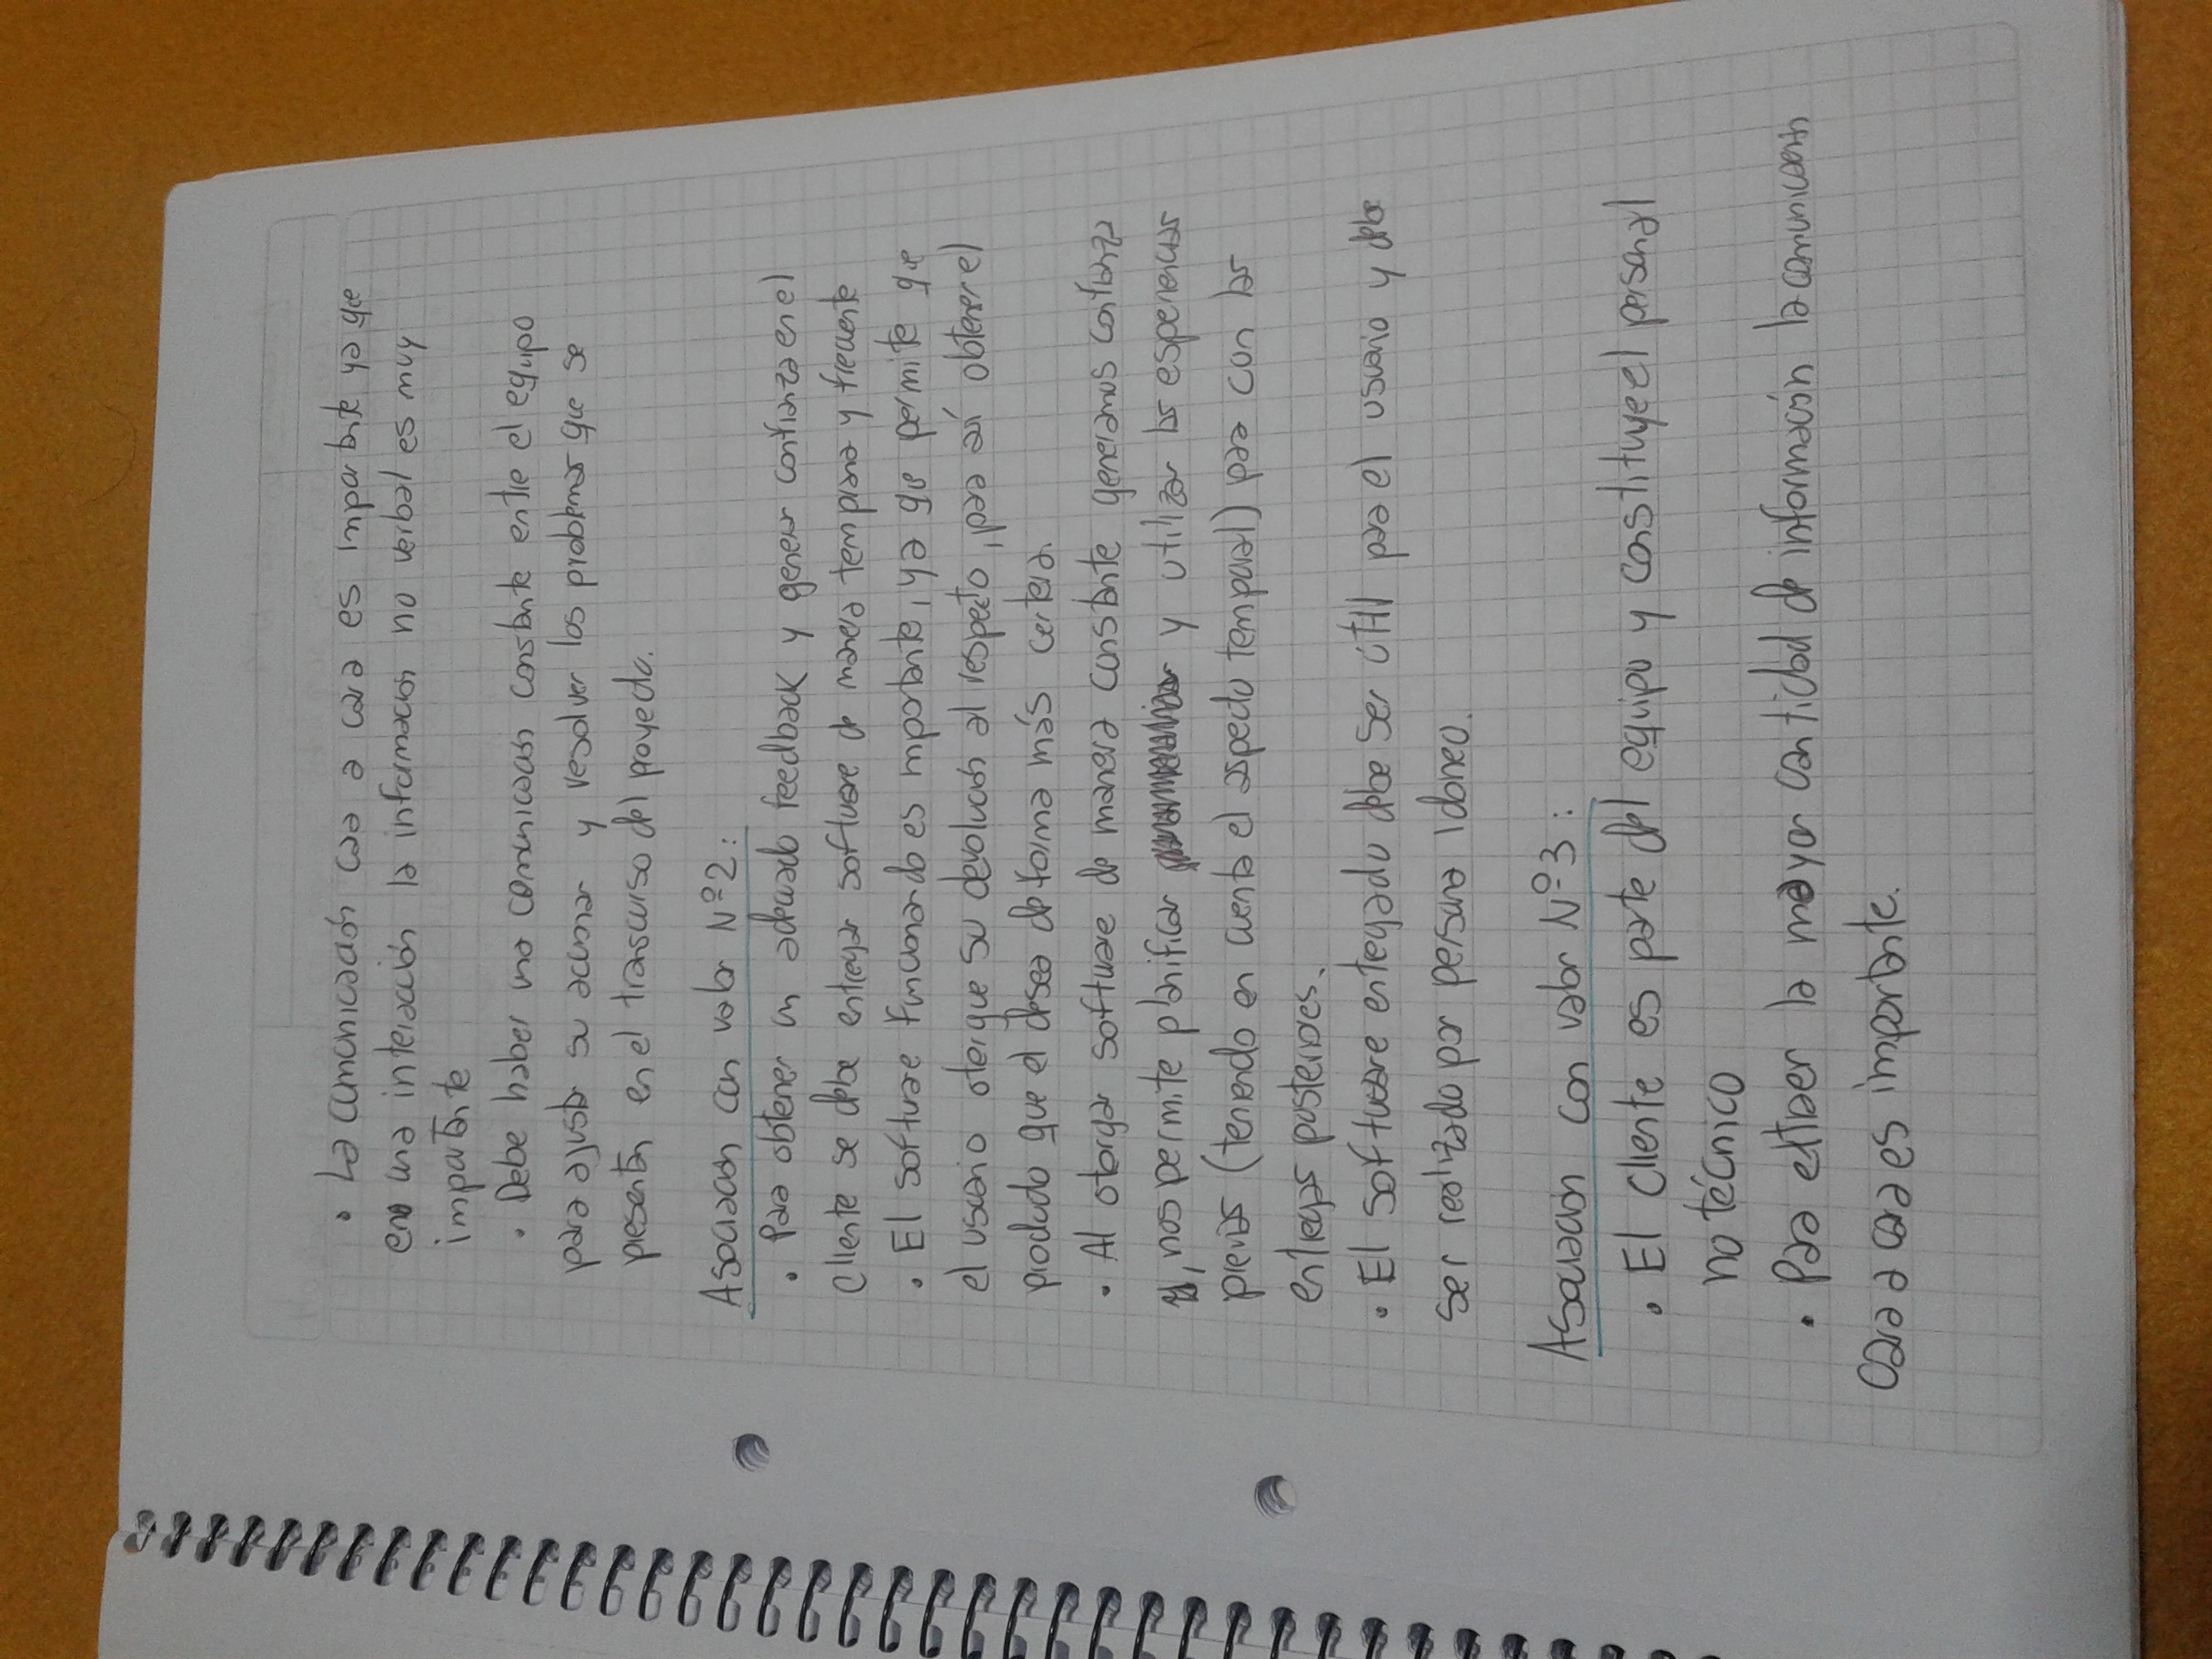 • La comunicación cara a cara es importante ya que
en una interacción la información no verbal es muy
importante
• Debe haber una comunicación constante entre el equipo
para ajustar su accionar y resolver los problemas que se
presentan en el transcurso del proyecto.
Asociación con valor Nº2:
• Para obtener un adecuado feedback y generar confianza en el
cliente se debe entregar software de manera temprana y frecuente
• El software funcionando es importante, ya que permite que
el usuario otorgue su devolución al respecto, para así obtener el
producto que el desea de forma más certera.
• Al otorgar software de manera constante generamos confianza
, nos permite planificar y utilizar las esperiencias
previas (teniendo en cuenta el aspecto temporal) para con las
entregas posteriores.
• El software entregado debe ser útil para el usuario y debe
ser realizado por persona idoneo.
Asociación con valor Nº3:
• El cliente es parte del equipo y constituye el personal
no técnico
• Para extraer la mayor cantidad de información la comunicación
cara a cara es importante.